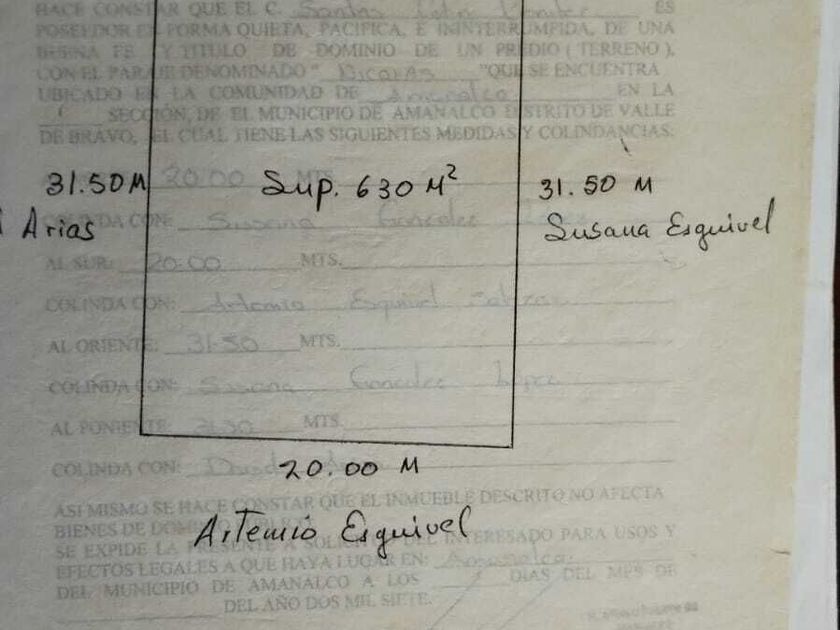 HACE CONSTAR QUE EL C. Santos ES
POSEEDOR EN FORMA QUIETA, PACIFICA, E ININTERRUMPIDA, DE UNA
BUENA FE Y TITULO DE DOMINIO DE UN PREDIO ( TERRENO ),
CON EL PARAJE DENOMINADO " "QUE SE ENCUENTRA
UBICADO EN LA COMUNIDAD DE Amanalco EN LA
SECCIÓN, DE EL MUNICIPIO DE AMANALCO DISTRITO DE VALLE
DE BRAVO, EL CUAL TIENE LAS SIGUIENTES MEDIDAS Y COLINDANCIAS:
20.00 MTS.
31.50 M Sup. 630 M² 31.50 M
Arias Susana Esquivel
COLINDA CON: Susana Gonzalez López
AL SUR: 20.00 MTS.
COLINDA CON: Artemio Esquivel
AL ORIENTE: 31.50 MTS.
COLINDA CON: Susana Gonzalez López
AL PONIENTE: 31.50 MTS.
COLINDA CON:
20.00 M
Artemio Esquivel
ASI MISMO SE HACE CONSTAR QUE EL INMUEBLE DESCRITO NO AFECTA
BIENES DE
SE EXPIDE LA PRESENTE A SOLICITUD DEL INTERESADO PARA USOS Y
EFECTOS LEGALES A QUE HAYA LUGAR EN: Amanalco
DEL MUNICIPIO DE AMANALCO A LOS DIAS DEL MES DE
DEL AÑO DOS MIL SIETE.